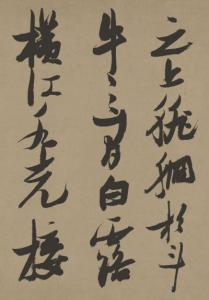 之上徘徊於斗
牛之間白露
橫江水光接